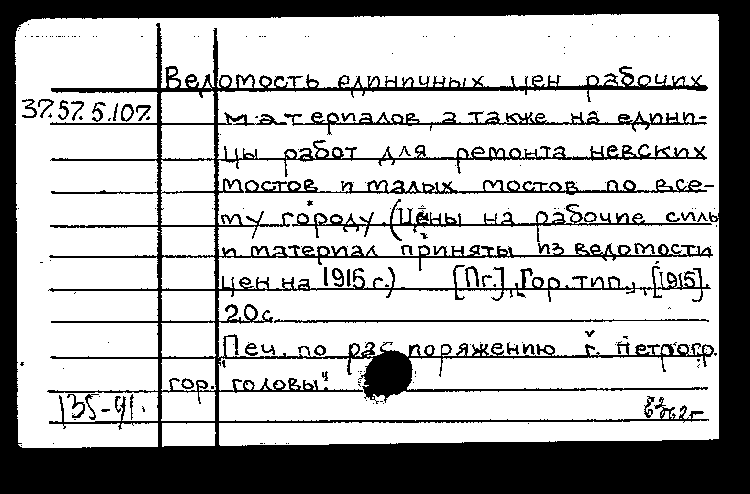 Ведомость единичных цен рабочих
37.57.5.107. материалов, а также на едини-
цы работ для ремонта невских
мостов и малых мостов по все-
му городу. (Цены на рабочие силы
и материал приняты из ведомости
цен на 1915 г.) [Пг.], "Гор. тип.", [1915].
20 с.
"Печ. по распоряжению г. петрогр.
гор. головы".
135-41.